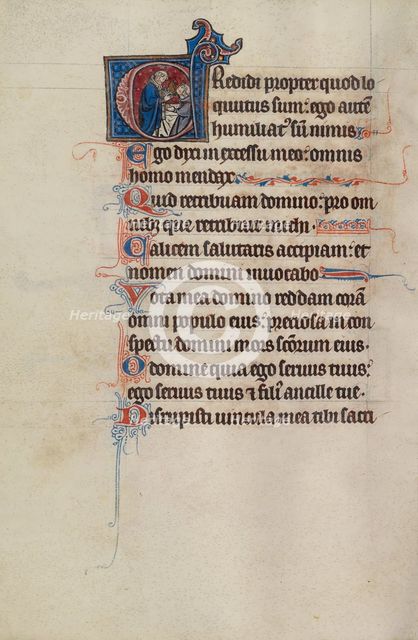 Credidi propter quod lo
quutus sum: ego autē
humiliat' sū nimis
Ego dixi in excessu meo: omnis
homo mendax
Quid retribuam domino: pro om
nib; que retribuit michi.
Calicem salutaris accipiam: et
nomen domini inuocabo
Vota mea domino reddam corā
omni populo eius: preciosa in con
spectu domini mors sc̄orum eius.
O domine quia ego seruus tuus:
ego seruus tuus & fili' ancille tue.
Dirupisti uincula mea tibi sacri
Heritage Images
Heritage Images